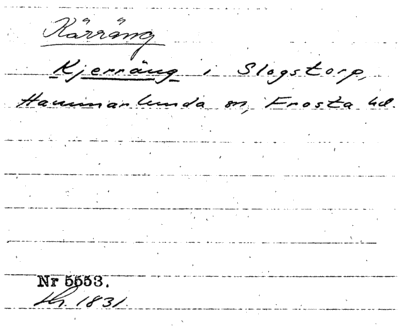 Kärräng
Kjerräng i Slogstorp,
Hammarlunda sn, Frosta hd.
Nr 5553.
1831